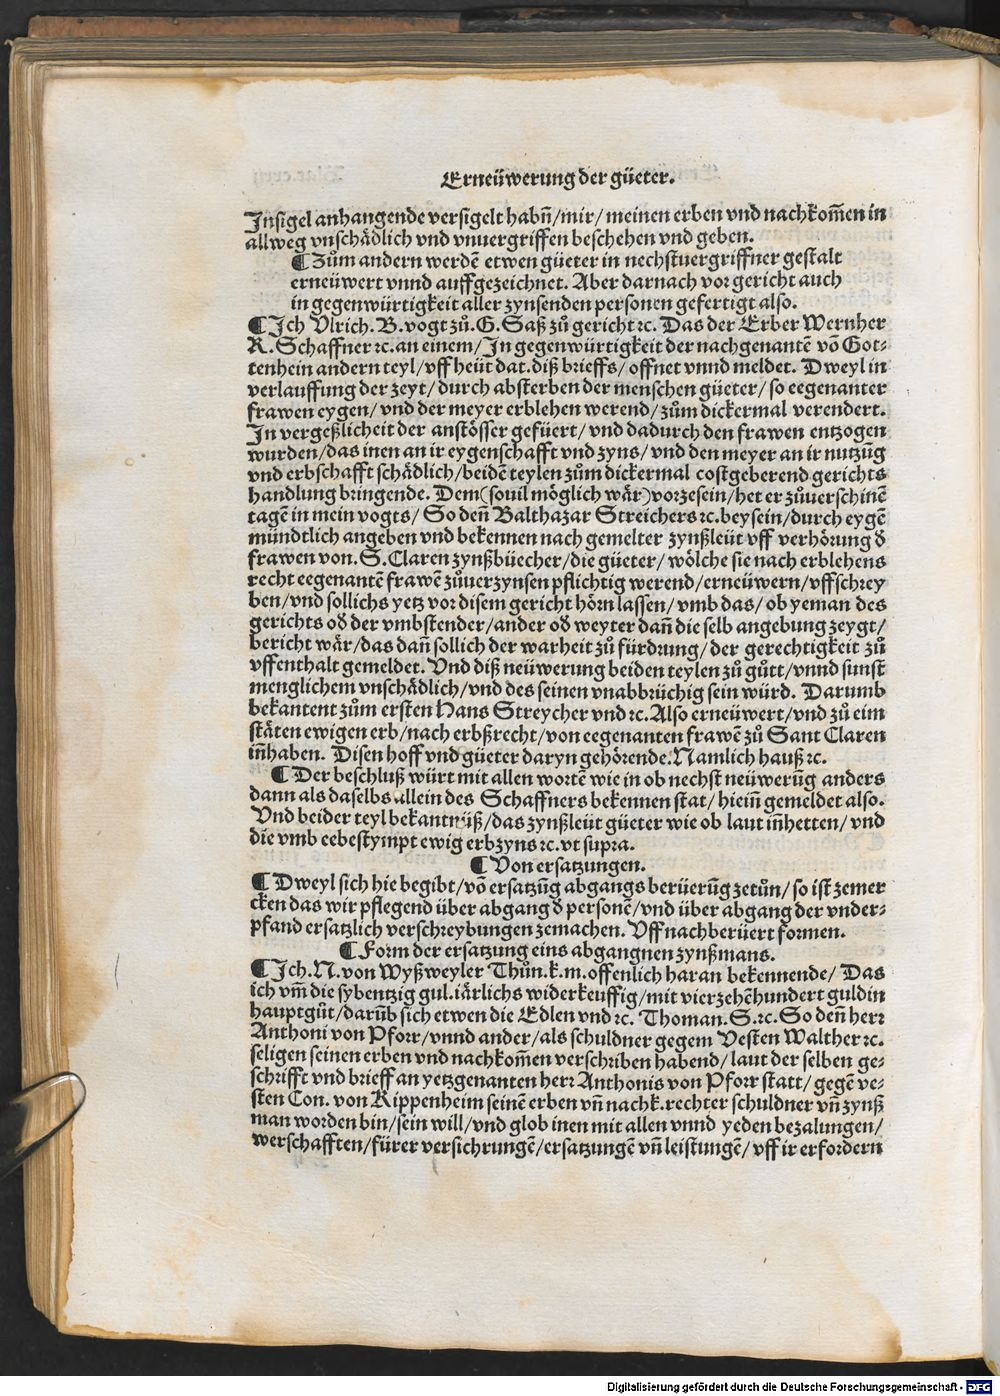 Erneüwerung der güeter.
Insigel anhangende versigelt habn̄/mir/ meinen erben vnd nachkom̄en in
allweg vnschädlich vnd vnuergriffen beschehen vnd geben.
¶ Zům andern werdē etwen güeter in nechstuergriffner gestalt
erneüwert vnnd auffgezeichnet. Aber darnach vor gericht auch
in gegenwürtigkeit aller zynsenden personen gefertigt also.
¶ Ich Vlrich. B. vogt zů. G. Saß zů gericht ⁊c. Das der Erber Wernher
R. Schaffner ⁊c. an einem/ In gegenwürtigkeit der nachgenantē vō Got⸗
tenhein andern teyl/ vff heüt dat. diß brieffs/ offnet vnnd meldet. Dweyl in
verlauffung der zeyt/ durch absterben der menschen güeter/ so eegenanter
frawen eygen/ vnd der meyer erblehen werend/ zům dickermal verendert.
In vergeßlicheit der anstösser gefüert/ vnd dadurch den frawen entzogen
wurden/ das inen an ir eygenschafft vnd zyns/ vnd den meyer an ir nutzūg
vnd erbschafft schädlich/ beidē teylen zům dickermal costgeberend gerichts
handlung bringende. Dem (souil möglich wär) vorzesein/ het er zůuerschinē
tagē in mein vogts/ So den̄ Balthazar Streichers ⁊c. beysein/ durch eygē
mündtlich angeben vnd bekennen nach gemelter zynßleüt vff verhörung ð
frawen von. S. Claren zynßbüecher/ die güeter/ wölche sie nach erblehens
recht eegenantē frawē zůuerzynsen pflichtig werend/ erneüwern/ vffschrey
ben/ vnd sollichs yetz vor disem gericht hörn lassen/ vmb das/ ob yeman des
gerichts oð der vmbstender/ ander oð weyter dan̄ die selb angebung zeygt/
bericht wär/ das dan̄ sollich der warheit zů fürdrung/ der gerechtigkeit zů
vffenthalt gemeldet. Vnd diß neüwerung beiden teylen zů gůtt/ vnnd sunst
menglichem vnschädlich/ vnd des seinen vnabbrüchig sein würd. Darumb
bekantent zům ersten Hans Streycher vnd ⁊c. Also erneüwert/ vnd zů eim
stäten ewigen erb/ nach erbßrecht/ von eegenanten frawē zů Sant Claren
in̄haben. Disen hoff vnd güeter daryn gehörende. Namlich hauß ⁊c.
¶ Der beschluß würt mit allen wortē wie in ob nechst neüwerūg anders
dann als daselbs allein des Schaffners bekennen stat/ hiein̄ gemeldet also.
Vnd beider teyl bekantnüß/ das zynßleüt güeter wie ob laut in̄hetten/ vnd
die vmb eebestympt ewig erbzyns ⁊c. vt supra.
¶ Von ersatzungen.
¶ Dweyl sich hie begibt/ vō ersatzūg abgangs berüerūg zetůn/ so ist zemer
cken das wir pflegend über abgang ð personē/ vnd über abgang der vnder⸗
pfand ersatzlich verschreybungen zemachen. Vff nachberüert formen.
¶ Form der ersatzung eins abgangnen zynßmans.
¶ Ich. N. von Wyßweyler Thůn. k. m. offenlich haran bekennende/ Das
ich vm̄ die sybentzig gul. iärlichs widerkeuffig/ mit vierzehēhundert guldin
hauptgůt/ darūb sich etwen die Edlen vnd ⁊c. Thoman. S. ⁊c. So den̄ herr
Anthoni von Pforr/ vnnd ander/ als schuldner gegem Vesten Walther ⁊c.
seligen seinen erben vnd nachkom̄en verschriben habend/ laut der selben ge⸗
schrifft vnd brieff an yetzgenanten herr Anthonis von Pforr statt/ gegē ve⸗
sten Con. von Rippenheim seinē erben vn̄ nachk. rechter schuldner vn̄ zynß
man worden bin/ sein will/ vnd glob inen mit allen vnnd yeden bezalungen/
werschafften/ fürer versichrungē/ ersatzungē vn̄ leistungē/ vff ir erfordern
Digitalisierung gefördert durch die Deutsche Forschungsgemeinschaft - DFG